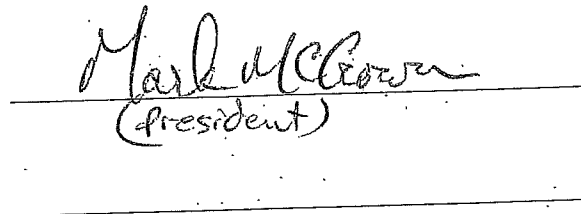 Mark McCrown
(president)